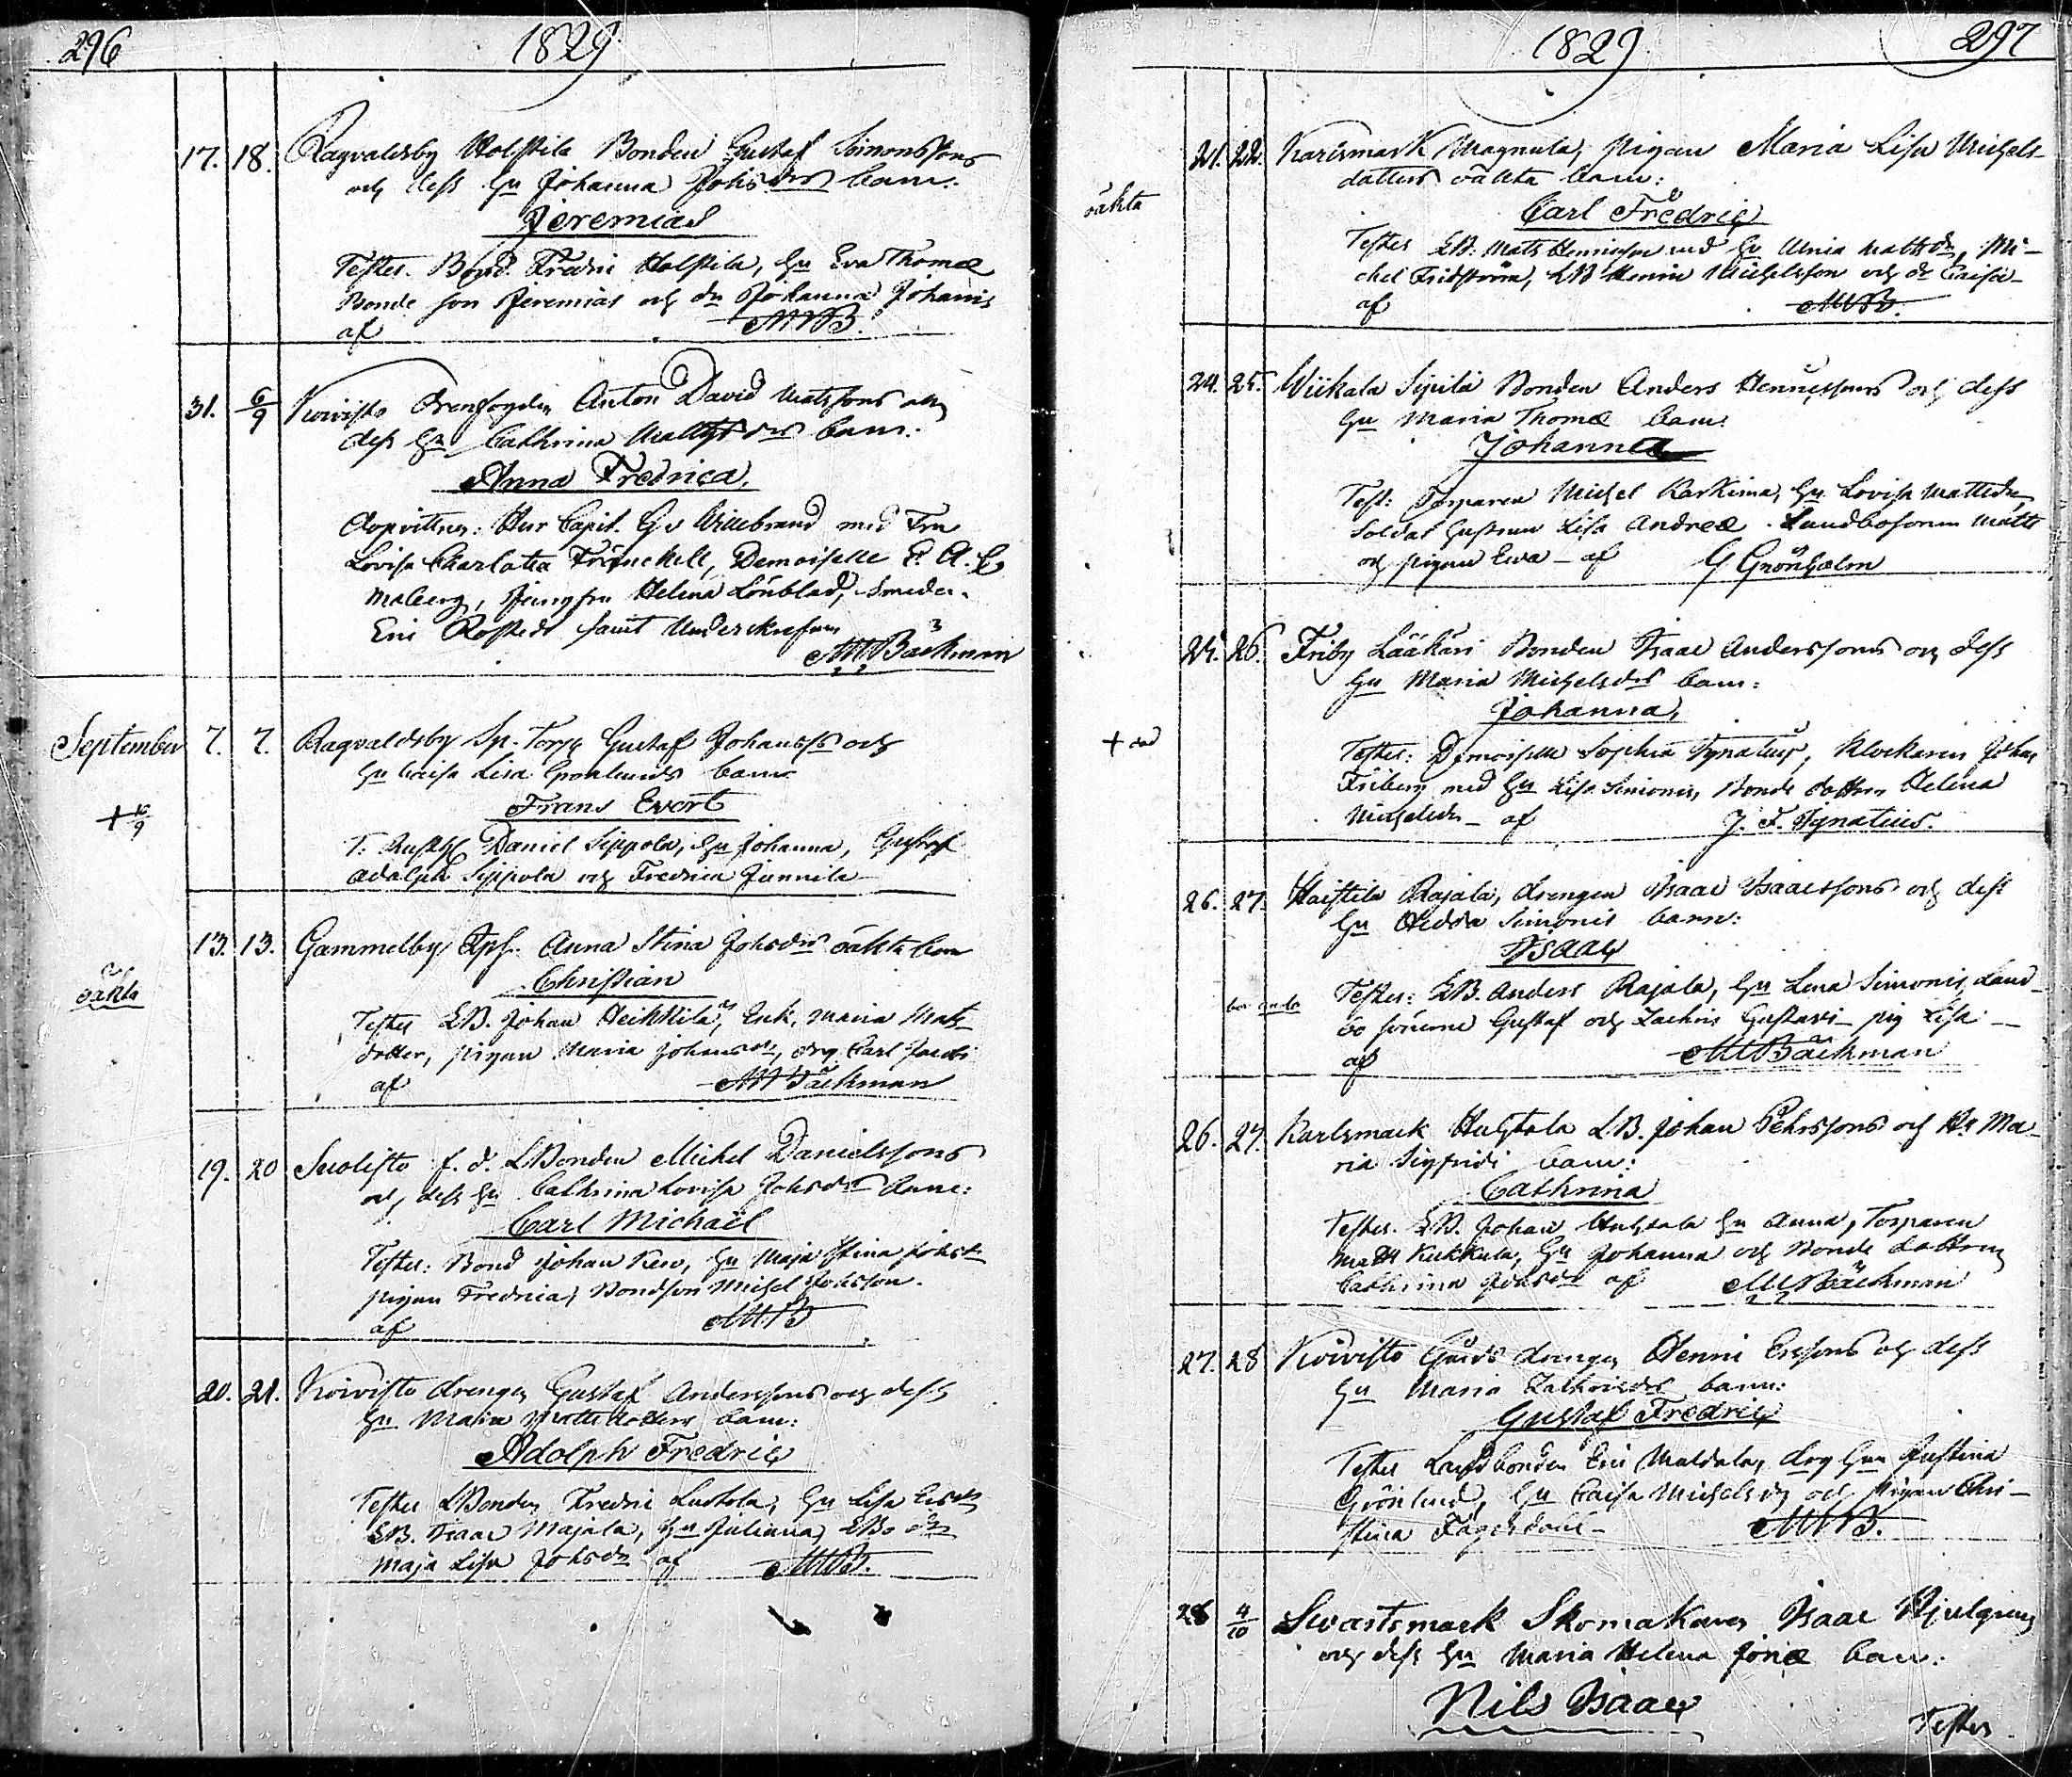 296 1829
17. 18. Ragvaldsby Holstila Bonden Gustaf Simonssons
och dess Hu Johanna Johsdrs barn:
Jeremias
Testes. Bond. Fredric Holstila, Hu Eva Thomæ
Bonde son Jeremias och dn Johanna Johannis
af MWB.
31. 6/9 Koivisto Drengfogden Anton David Matssons och
dess Hu Cathrina Mattsdrs barn:
Anna Fredrica,
Dopvittnen: Herr Capit. G v Willebrand med Fru
Lovisa Charlotta Franckell, Demoiselle E. A. C
Malberg, Jungfru Helena Lönblad, Smeden
Eric Rostedt samt Underskrefven
MWBäckman
September 7. 7. Ragvaldsby Sp. Torp Gustaf Johanss och
Hu Caisa Lisa Grönlunds barn
Frans Evert
+ 10/9
T. Rusth Daniel Sippola, Hu Johanna, Gustaf
Adolph Sippola och Fredrica Junnila
13. 13. Gammelby Inh. Anna Stina Johsdrs oäkta barn
Christian
oäkta
Testes LB. Johan Heikkilä, Enk. Maria Mats
dotter, pigan Maria Johansdr, drg Carl Jacobs
af MWBäckman
19. 20 Suolisto f. d. LBonden Michel Danielssons
och dess Hu Cathrina Lovisa Johsdrs barn:
Carl Michaël
Testes: Bond Johan Keso, Hu Maja Stina Johsdr
pigan Fredrica, Bondson Michel Johsson.
af MWB
20. 21. Koivisto drengen Gustaf Anderssons och dess
Hu Maria Mattsdotters barn:
Adolph Fredric
Testes LBonden Fredric Luotola, Hu Lisa Ericsdr
LB. Isaac Majala, Hu Juliana, LBo dr
Maja Lisa Johsdr af MWB.
1829 297
21. 22. Karlsmark Magnula, pigan Maria Lisa Michels-
dotters oäkta barn:
oäkta
Carl Fredric
Testes LB. Mats Hennisson med Hu Ulrica Mattsdr, Mi-
chel Fridström, LB Henric Michelsson och dr Caisa
af MWB.
24. 25. Wiikala Sipilä Bonden Anders Hennessons och dess
Hu Maria Thomæ barn:
Johanna
Test: Torparen Michel Karkima, Hu Lovisa Mattsdr,
Soldat hustrun Lisa Andreæ. Landbosonen Matts
och pigan Eva – af G Grönholm
25. 26. Friby Lääkäri Bonden Isaac Anderssons och dess
Hu Maria Michelsdrs barn:
Johanna,
+ död
Testes: Demoiselle Sophia Ignatius, Klockaren Johan
Friberg med Hu Lisa Simonis, Bonde dottren Helena
Michelsdr – af J. F. Ignatius.
26. 27. Haistila Rajala, drengen Isaac Isaacssons och dess
Hu Hedda Simonis barn:
Isaac
Testes: LB. Anders Rajala, Hu Lena Simonis, Land-
bo sönerne Gustaf och Zachris Gustavi – pig Lisa –
af MWBäckman
26. 27. Karlsmark Huhtala LB. Johan Pehrssons och Hu Ma-
ria Sigfridi barn:
Cathrina
Testes. LB. Johan Huhtala Hu Anna, Torparen
Matts Kukkula, Hu Johanna och Bonde dottren
Cathrina Johsdr af MWBäckman
27. 28 Koivisto Gårds drengen Henric Ersssons och dess
Hu Maria Zachrisdrs barn:
Gustaf Fredric
Testes Landbonden Eric Muldala, drg Hun Justina
Grönlund, Hu Caisa Michelsdr och pigan Chri-
stina Fagerdahl – MWB.
28 4/10 Svartsmark Skomakaren Isaac Hjulgrens
och dess Hu Maria Helena Jonæ barn:
Nils Isaac
Testes